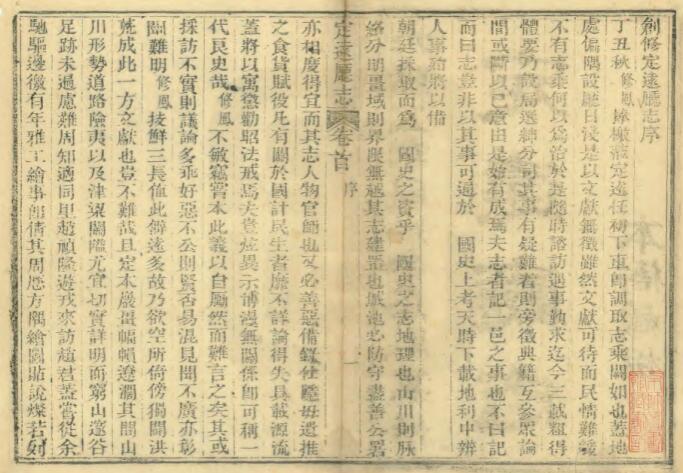 創修定遠廳志序
丁丑秋修鳳捧檄蒞定遠任初下車卽調取志乘闕如也蓋地
處偏隅設廳日淺是以文獻無徵雖然文獻可待而民情難緩
不有志乘何以爲治於是隨時諮訪遇事勤求迄今三載粗得
體要乃設局選紳分司其事有疑難者則旁徵典籍互參眾論
間或斷以己意由是始有成焉夫志者記一邑之事也不曰記
而曰志豈非以其事可通於 國史上考天時下載地利中辨
人事殆將以備
朝廷採取而爲 國史之資乎 國史之志地理也山川則脉
絡分明畺域則界限無遁其志建置也城池必防守盡善公署
定遠廳志 卷首 序 一
亦相度得宜而其志人物官師也又必善惡備敘仕隱毋遺推
之食貨賦役凡有關於國計民生者靡不詳論得失具載源流
蓋將以寓懲勸昭法戒焉夫豈炫異示博漫無關係卽可稱一
代良史哉修鳳不敏竊嘗本此義以自勵然而難言之矣其或
採訪不實則議論多乖好惡不公則賢否易混見聞不廣亦彰
闡難明修鳳技鮮三長值此僻遠多故乃欲空所倚傍獨闢洪
荒成此一方文獻也豈不難哉且定本巖畺幅𢄙遼濶其間山
川形勢道路險夷以及津梁關隘尤宜切實詳明而窮山邃谷
足跡未過慮難周知適同里趙楨隆遊戎來訪趙君蓋嘗從余
馳驅邊徼有年雅工繪事能倩其周歷方隅繪圖貼說燦若列